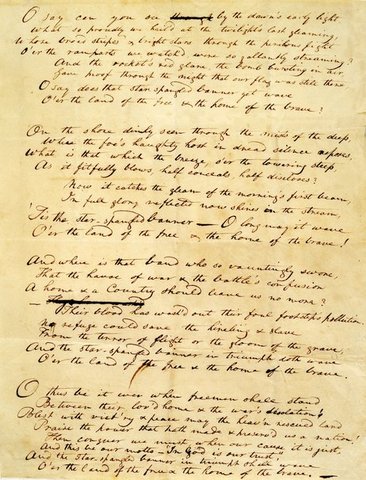 O say can you see by the dawn's early light
What so proudly we hail'd at the twilight's last gleaming,
Whose broad stripes & bright stars through the perilous fight
O'er the ramparts we watch'd, were so gallantly streaming?
And the rocket's red glare, the bomb bursting in air,
Gave proof through the night that our flag was still there
O say does that star-spangled banner yet wave
O'er the land of the free & the home of the brave?
On the shore dimly seen through the mists of the deep,
Where the foe's haughty host in dread silence reposes,
What is that which the breeze, o'er the towering steep,
As it fitfully blows, half conceals, half discloses?
Now it catches the gleam of the morning's first beam,
In full glory reflected now shines in the stream,
'Tis the star-spangled banner — O long may it wave
O'er the land of the free & the home of the brave!
And where is that band who so vauntingly swore,
That the havoc of war & the battle's confusion
A home & a Country should leave us no more?
Their blood has wash'd out their foul footsteps pollution.
No refuge could save the hireling & slave
From the terror of flight or the gloom of the grave,
And the star-spangled banner in triumph doth wave
O'er the land of the free & the home of the brave.
O thus be it ever when freemen shall stand
Between their lov'd home & the war's desolation!
Blest with vict'ry & peace may the heav'n rescued land
Praise the power that hath made & preserv'd us a nation!
Then conquer we must, when our cause it is just,
And this be our motto - "In God is our trust,"
And the star-spangled banner in triumph shall wave
O'er the land of the free & the home of the brave. —